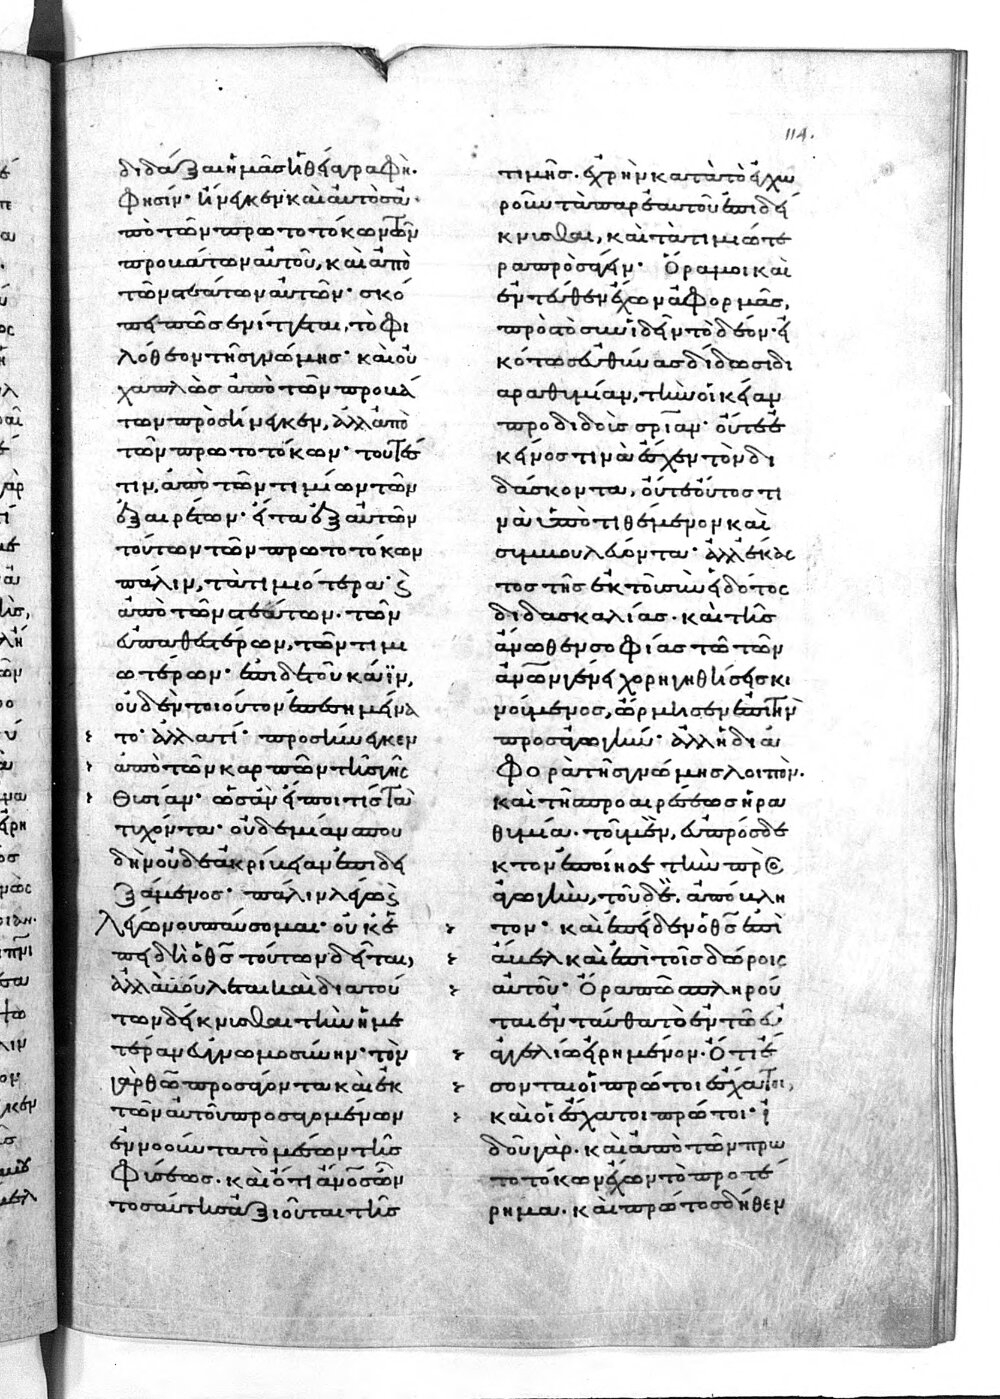 114.
διδάξαι ἡμᾶς ἡ θεία γραφὴ.
φησὶν· ἤνεγκεν καὶ αὐτὸς ἀ
πὸ τῶν πρωτοτόκων τῶν
προβάτων αὐτοῦ, καὶ ἀπὸ
τῶν στεάτων αὐτῶν· σκό
πει πῶς αἰνίττεται, τὸ φι
λόθεον τῆς γνώμης· καὶ οὐ
χ ἁπλῶς ἀπὸ τῶν προβά
των προσήνεγκεν, ἀλλ' ἀπὸ
τῶν πρωτοτόκων· τουτέσ
τιν, ἀπὸ τῶν τιμίων τῶν
ἐξαιρέτων· εἶτα ἐξ αὐτῶν
τούτων τῶν πρωτοτόκων
πάλιν, τὰ τιμιότερα· καὶ
ἀπὸ τῶν στεάτων. τῶν
εὐπαθεστέρων, τῶν τιμι
ωτέρων· ἐπὶ δὲ τοῦ κάϊν,
οὐδὲν τοιοῦτον ἐπεσημήνα
το· ἀλλὰ τί· προσήνεγκεν
ἀπὸ τῶν καρπῶν τῆς γῆς
θυσίαν· ὡς ἂν εἴποι τις τὰ
τυχόντα· οὐδεμίαν σπου
δὴν οὐδὲ ἀκρίβειαν ἐπιδει
ξάμενος· πάλιν λέγω καὶ
λέγων οὐ παύσομαι· οὐκ ἐ
πειδὴ ὁ θς τούτων δεῖται,
ἀλλὰ βούλεται καὶ διὰ τού
των δείκνυσθαι τὴν ἡμε
τέραν εὐγνωμοσύνην· τὸν
γὰρ θω προσάγοντα καὶ ἐκ
τῶν αὐτοῦ προσαγομένων
ἐννοοῦντα τὸ μέσον τῆς
φύσεως. καὶ ὅτι ανος ὢν
τοσαύτης ἀξιοῦται τῆς
τιμῆς. ἐχρῆν κατὰ τὸ ἐγχω
ροῦν τὰ παρ' ἑαυτοῦ ἐπιδεί
κνυσθαι, καὶ τὰ τιμιώτε
ρα προσάγειν· Ὅρα μοι καὶ
ἐντεῦθεν ἔχων ἀφορμὰς,
πρὸς τὸ συνιδεῖν τὸ δέον· εἰ
κότως εὐθύνας δίδωσι δι
ὰ ῥαθυμίαν, τὴν οἰκείαν
προδιδοὺς σρίαν· οὔτε ἐ
κεῖνος τινὰ ἔσχεν τὸν δι
δάσκοντα, οὔτε οὗτος τι
νὰ ὑποτιθέμενον καὶ
συμβουλεύοντα· ἀλλ' ἕκασ
τος τῆς ἐκ τοῦ συνειδότος
διδασκαλίας. καὶ τῆς
ἄνωθεν σοφίας τῶ τῶν
ανων γένει χορηγηθείσης κι
νούμενος, ὥρμησεν ἐπὶ τὴν
προσαγωγήν· ἀλλ' ἡ δια
φορὰ τῆς γνώμης λοιπὸν.
καὶ τῆς προαιρέσεως ἡ ῥα
θυμία. τοῦ μὲν, εὐπρόσδε
κτον ἐποίησε τὴν προσ
αγωγὴν, τοῦ δὲ, ἀπόβλη
τον· καὶ ἐπεῖδεν ὁ θς ἐπὶ
ἄβελ καὶ ἐπὶ τοῖς δώροις
αὐτοῦ· Ὅρα πῶς πληροῦ
ται ἐνταῦθα τὸ ἐν τῶ εὐ
αγγελίω εἰρημένον· Ὅτι ἔ
σονται οἱ πρῶτοι ἔσχατοι,
καὶ οἱ ἔσχατοι πρῶτοι· ἰ
δοὺ γὰρ. καὶ ἀπὸ τῶν πρω
τοτόκων ἔχων τὸ προτέ
ρημα. καὶ πρῶτος δήθεν